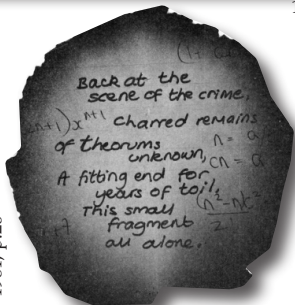 Back at the
scene of the crime,
Charred remains
of theorums
unknown,
A fitting end for
years of toil,
This small
fragment
all alone.